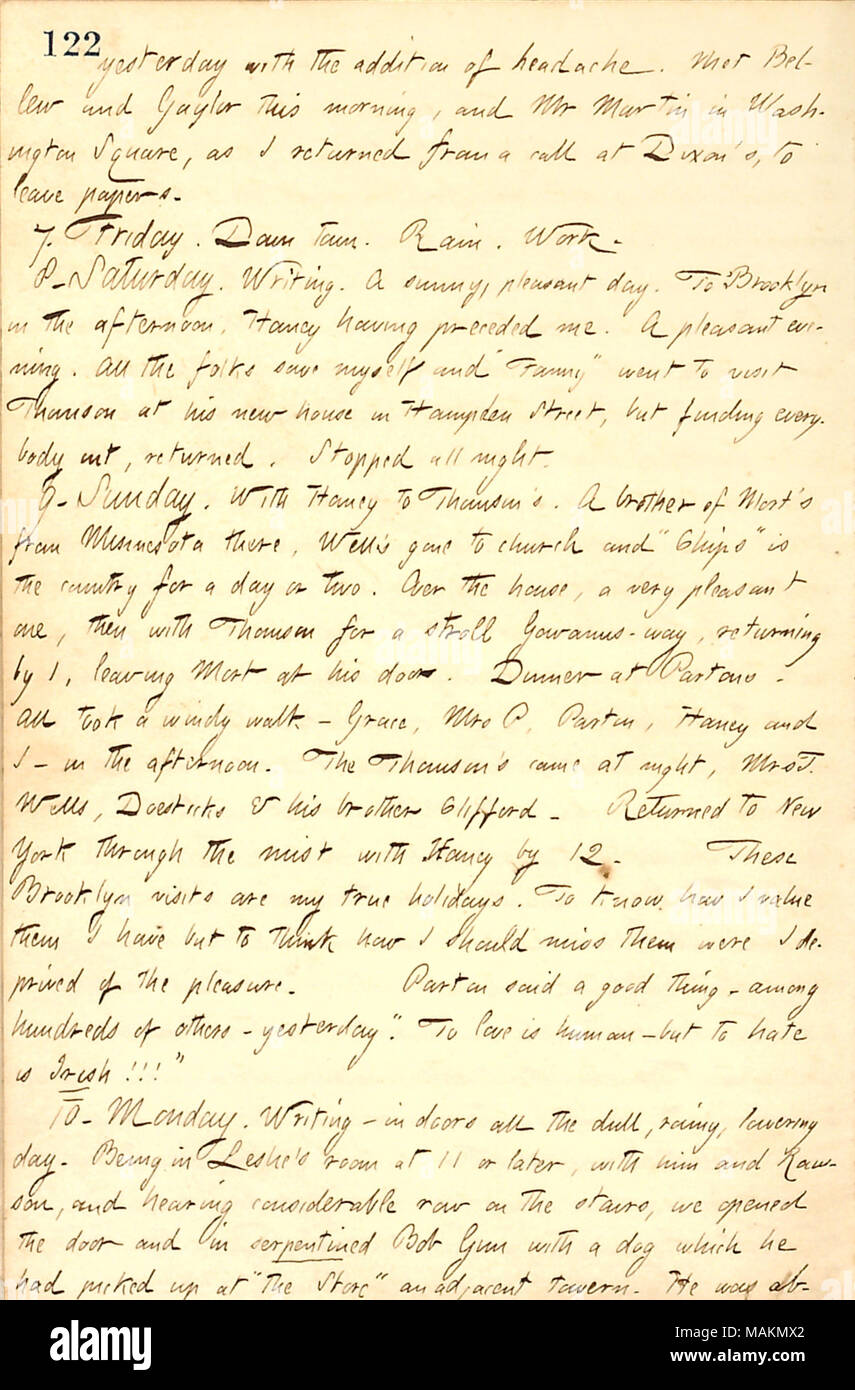 122
yesterday with the addition of headache. Met Bel-
lew and Gaylor this morning, and Mr Martin in Wash-
ington Square, as I returned from a call at Dixon's, to
leave papers.
7. Friday. Down town. Rain. Work.
8. Saturday. Writing. A sunny, pleasant day. To Brooklyn
in the afternoon, Haney having preceded me. A pleasant eve-
ning. All the folks save myself and "Fanny" went to visit
Thomson at his new house in Hampden Street, but finding every-
body out, returned. Stopped all night.
9. Sunday. With Haney to Thomson's. A brother of Mort's
from Minnesota there, Wells gone to church and "Chips" is
the country for a day or two. Over the house, a very pleasant
one, then with Thomson for a stroll Gowanus-way, returning
by 1, leaving Mort at his door. Dinner at Partons.
All took a windy walk - Grace, Mrs P, Parton, Haney and
I - in the afternoon. The Thomson's came at night, Mrs T.
Wells, Doesticks & his brother Clifford. Returned to New
York through the mist with Haney by 12. These
Brooklyn visits are my true holidays. To know how I value
them I have but to think how I should miss them were I de-
prived of the pleasure. Parton said a good thing - among
hundreds of others - yesterday". To love is human - but to hate
is Irish!!!"
10. Monday. Writing - in doors all the dull, rainy, lowering
day. Being in Leslie's room at 11 or later, with him and Raw-
son, and hearing considerable row on the stairs, we opened
the door and in serpentined Bob Gun with a dog which he
had picked up at "the Store" an adjacent tavern. He was ob-
alamy
Image ID: MAKMX2
www.alamy.com